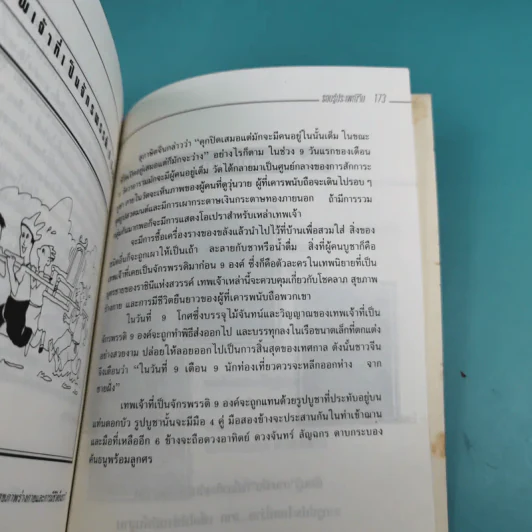 พเจ้าที่เป็นจักรพรรดิ
รอบรู้ประเพณีจีน 173
สุภาษิตจีนกล่าวว่า “คุกปิดเสมอแต่มักจะมีคนอยู่ในนั้นเต็ม ในขณะ
ปิดอยู่เสมอแต่ก็มักจะว่าง” อย่างไรก็ตาม ในช่วง 9 วันแรกของเดือน
จะมีผู้คนอยู่เต็ม วัดได้กลายมาเป็นศูนย์กลางของการสักการะ
ภายในวัดจะเห็นภาพของผู้คนที่ดูวุ่นวาย ผู้ที่เคารพนับถือจะเดินไปรอบ ๆ
และมีการเผากระดาษเงินกระดาษทองภายนอก ถ้ามีการรวม
มากพอก็จะมีการแสดงโอเปราสำหรับเหล่าเทพเจ้า
จะมีการซื้อเครื่องรางของขลังแล้วนำไปไว้ที่บ้านเพื่อสวมใส่ สิ่งของ
ก็จะถูกเผาให้เป็นเถ้า ละลายกับชาหรือน้ำดื่ม สิ่งที่ผู้คนบูชาก็คือ
เทพเจ้าที่เคยเป็นจักรพรรดิมาก่อน 9 องค์ ซึ่งก็คือตัวละครในเทพนิยายที่เป็น
ของราชินีแห่งสวรรค์ เทพเจ้าเหล่านี้จะควบคุมเกี่ยวกับโชคลาภ สุขภาพ
ร่างกาย และการมีชีวิตยืนยาวของผู้ที่เคารพนับถือพวกเขา
ในวันที่ 9 โกศซึ่งบรรจุไม้จันทน์และวิญญาณของเทพเจ้าที่เป็น
จักรพรรดิ 9 องค์จะถูกทำพิธีส่งออกไป และบรรทุกลงในเรือขนาดเล็กที่ตกแต่ง
อย่างสวยงาม ปล่อยให้ลอยออกไปเป็นการสิ้นสุดของเทศกาล ดังนั้นชาวจีน
จึงเตือนว่า “ในวันที่ 9 เดือน 9 นักท่องเที่ยวควรจะหลีกออกห่าง จาก
ชายฝั่ง”
เทพเจ้าที่เป็นจักรพรรดิ 9 องค์จะถูกแทนด้วยรูปบูชาที่ประทับอยู่บน
แท่นดอกบัว รูปบูชานั้นจะมีมือ 4 คู่ มือสองข้างจะประสานกันในท่าเข้าฌาน
และมือที่เหลืออีก 6 ข้างจะถือดวงอาทิตย์ ดวงจันทร์ ลัญฉกร ดาบกระบอง
คันธนูพร้อมลูกศร